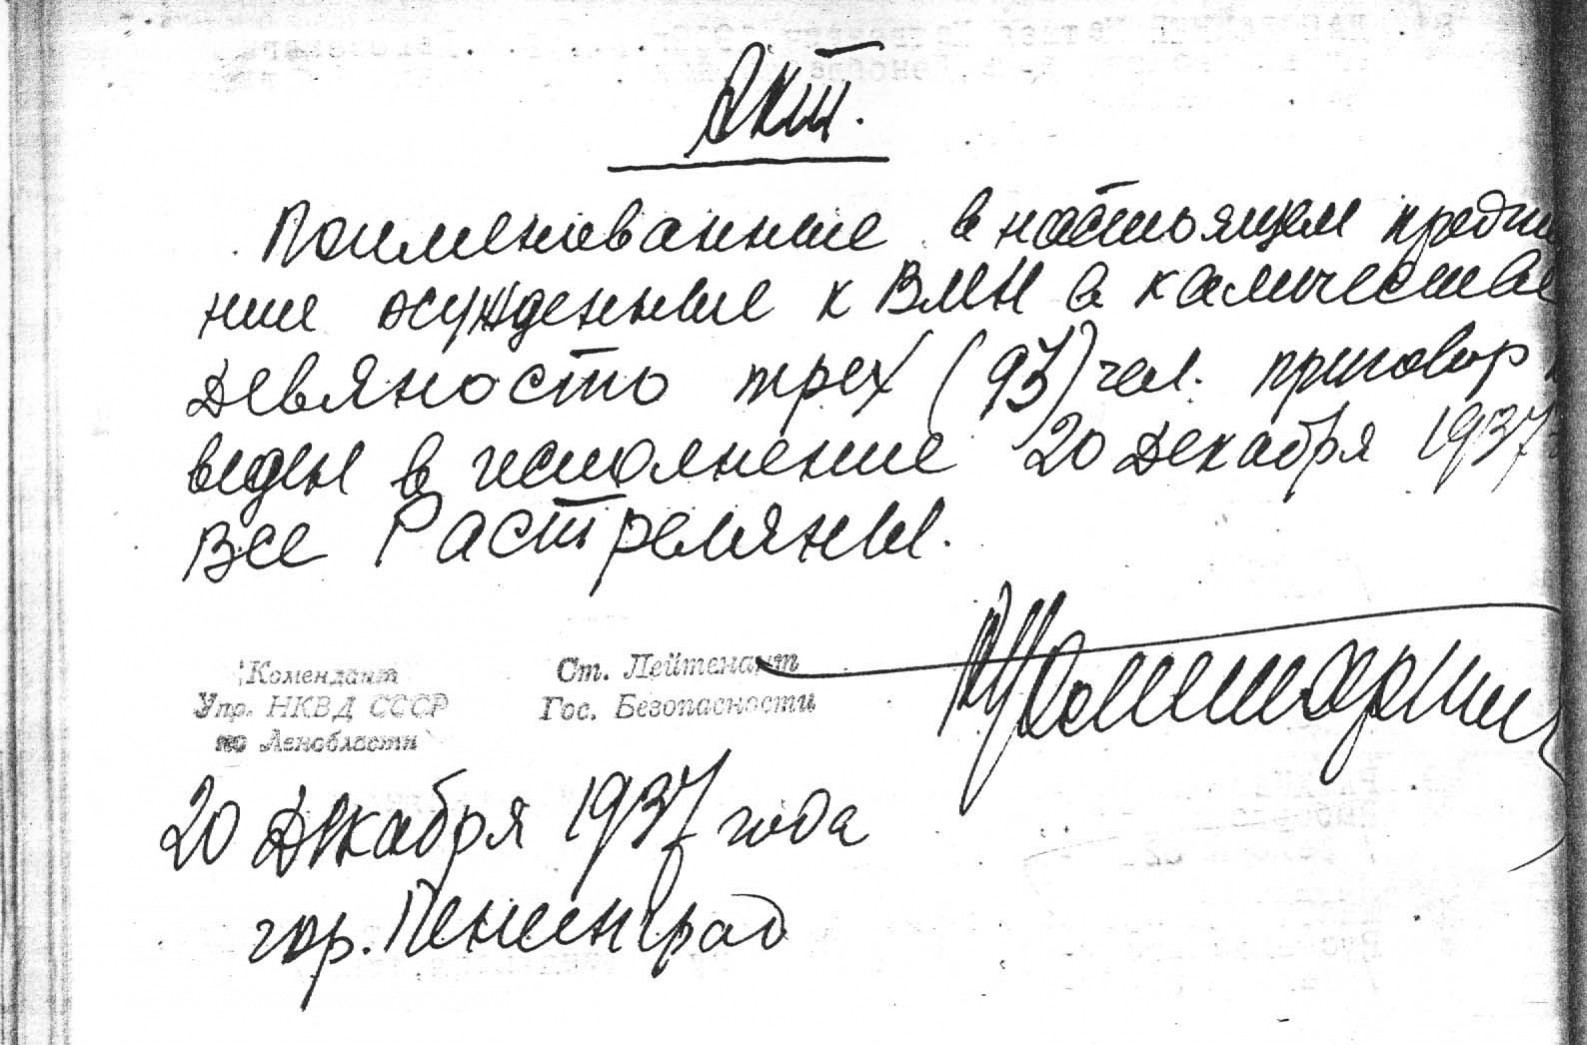 Акт.
Поименованные в настоящем предпи
ние осужденные к ВМН в количестве
Девяносто трех (93) чел. приговор
веден в исполнение 20 Декабря 1937
Все Растреляны.
Комендант
Упр. НКВД СССР
по Ленобласти
Ст. Лейтенант
Гос. Безопасности
20 Декабря 1937 года
гор. Ленинград